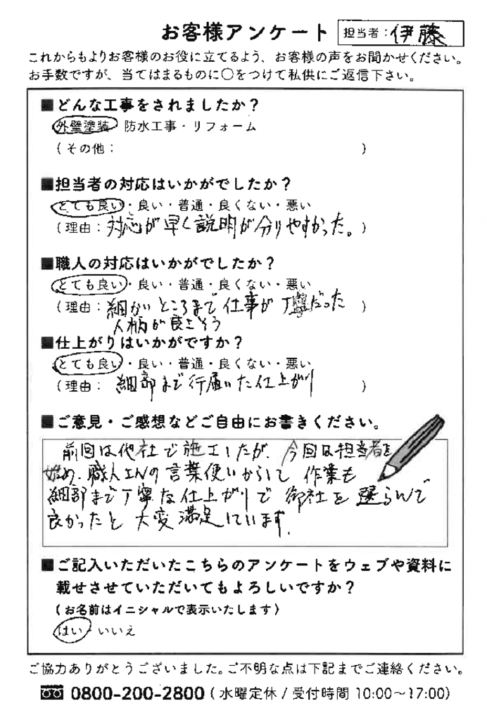 お客様アンケート 担当者:伊藤
これからもよりお客様のお役に立てるよう、お客様の声をお聞かせください。
お手数ですが、当てはまるものに○をつけて私供にご返信下さい。
■どんな工事をされましたか?
外壁塗装・防水工事・リフォーム
(その他: )
■担当者の対応はいかがでしたか?
とても良い・良い・普通・良くない・悪い
(理由:対応が早く説明が分りやすかった。)
■職人の対応はいかがでしたか?
とても良い・良い・普通・良くない・悪い
(理由:細かいところまで仕事が丁寧だった )
人柄が良さそう
■仕上がりはいかがですか?
とても良い・良い・普通・良くない・悪い
(理由:細部まで行届いた仕上がり )
■ご意見・ご感想などご自由にお書きください。
前回は他社で施工したが、今回は担当者を
始め、職人さんの言葉使いからして作業も
細部まで丁寧な仕上がりで御社を選らんで
良かったと大変満足しています。
■ご記入いただいたこちらのアンケートをウェブや資料に
載せさせていただいてもよろしいですか?
(お名前はイニシャルで表示いたします)
はい・いいえ
ご協力ありがとうございました。ご不明な点は下記までご連絡ください。
0800-200-2800(水曜定休/受付時間 10:00~17:00)